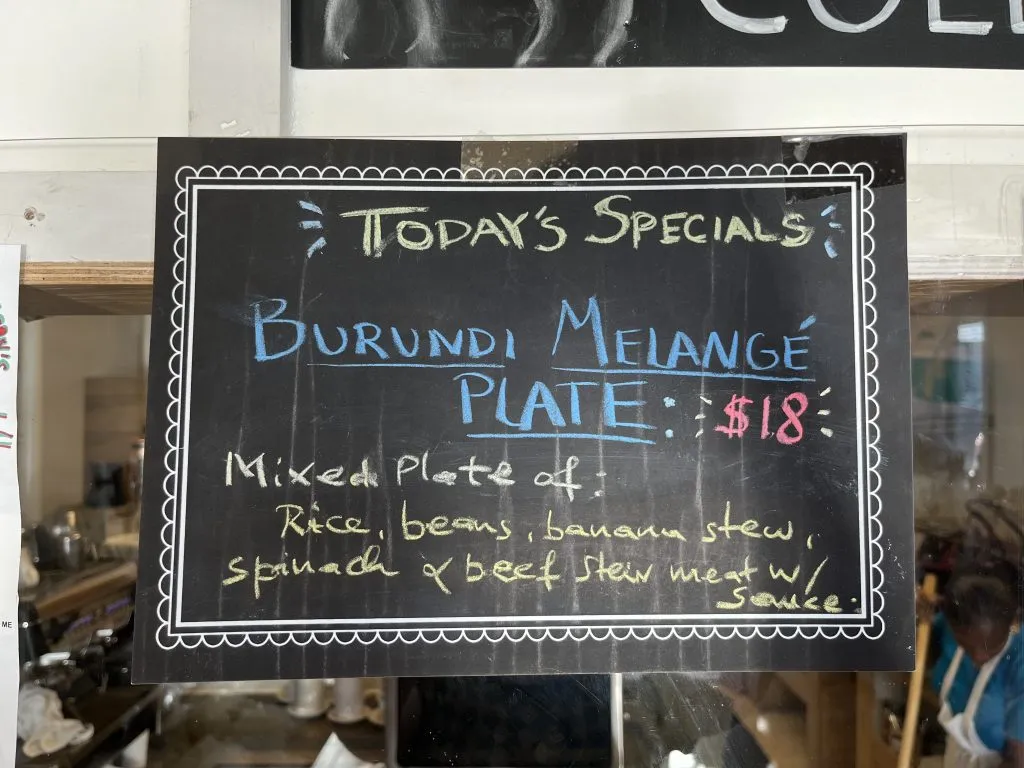 TODAY'S SPECIALS
BURUNDI MELANGÉ
PLATE: $18
Mixed Plate of:
Rice, beans, banana stew,
spinach & beef stew meat w/
sauce.
ME